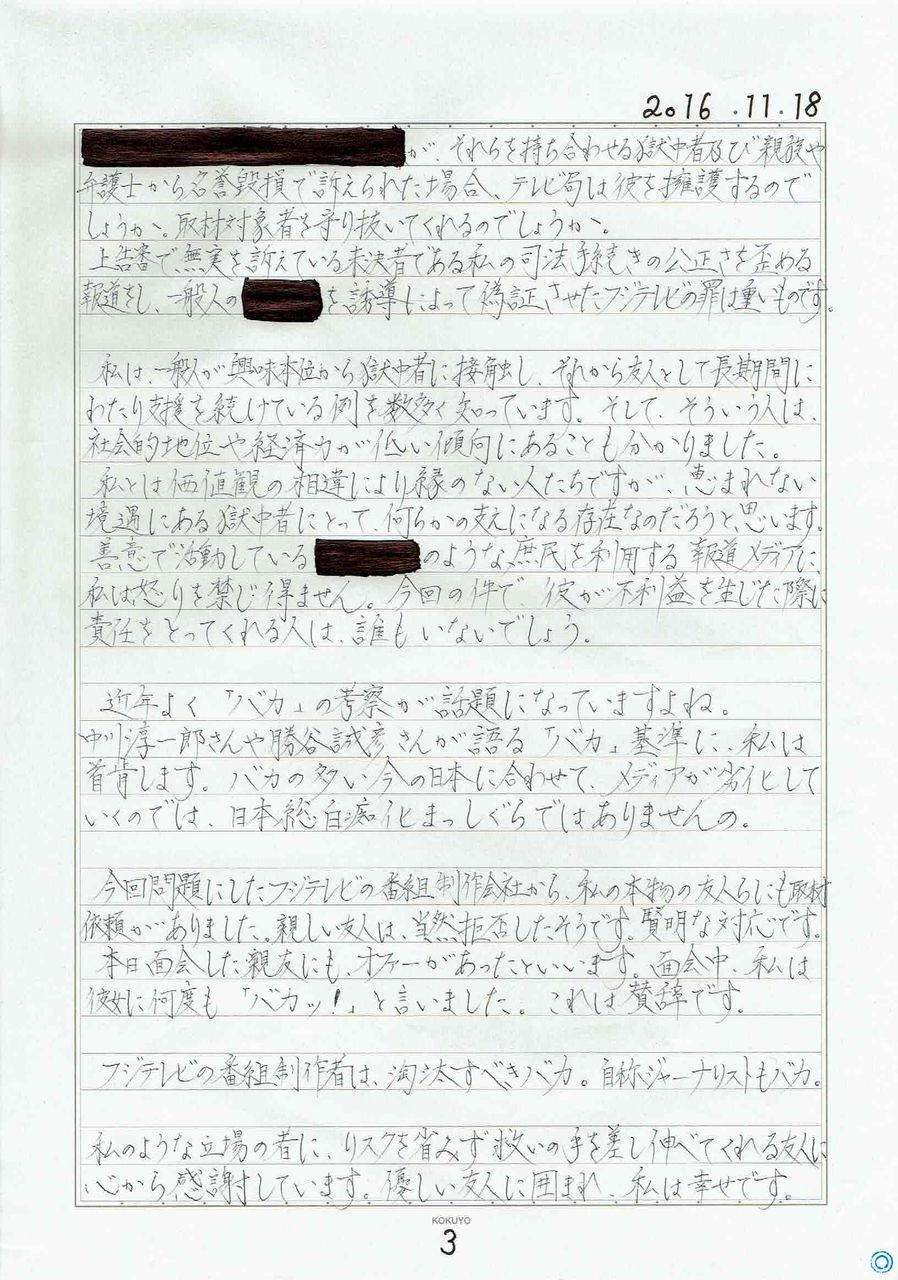 2016.11.18
が、それらを持ち合わせる獄中者及び親族や
弁護士から名誉毀損で訴えられた場合、テレビ局は彼を擁護するので
しょうか。取材対象者を守り抜いてくれるのでしょうか。
上告審で無実を訴えている未決者である私の司法手続きの公正さを歪める
報道をし、一般人の を誘導によって偽証させたフジテレビの罪は重いものです。
私は、一般人が興味本位から獄中者に接触し、それから友人として長期間に
わたり支援を続けている例を数多く知っています。そして、そういう人は、
社会的地位や経済力が低い傾向にあることも分かりました。
私とは価値観の相違により縁のない人たちですが、恵まれない
境遇にある獄中者にとって、何らかの支えになる存在なのだろうと、思います。
善意で活動している のような庶民を利用する報道メディアに、
私は怒りを禁じ得ません。今回の件で、彼が不利益を生じた際に
責任をとってくれる人は、誰もいないでしょう。
近年よく「バカ」の考察が話題になっていますよね。
中川淳一郎さんや勝谷誠彦さんが語る「バカ」基準に、私は
首肯します。バカの多い今の日本に合わせて、メディアが劣化して
いくのでは、日本総白痴化まっしぐらではありませんの。
今回問題にしたフジテレビの番組制作会社から、私の本物の友人らにも取材
依頼がありました。親しい友人は、当然拒否したそうです。賢明な対応です。
本日面会した親友にも、オファーがあったといいます。面会中、私は
彼女に何度も「バカッ!」と言いました。これは賛辞です。
フジテレビの番組制作者は、淘汰すべきバカ。自称ジャーナリストもバカ。
私のような立場の者に、リスクを省みず救いの手を差し伸べてくれる友人に
心から感謝しています。優しい友人に囲まれ、私は幸せです。
KOKUYO
3